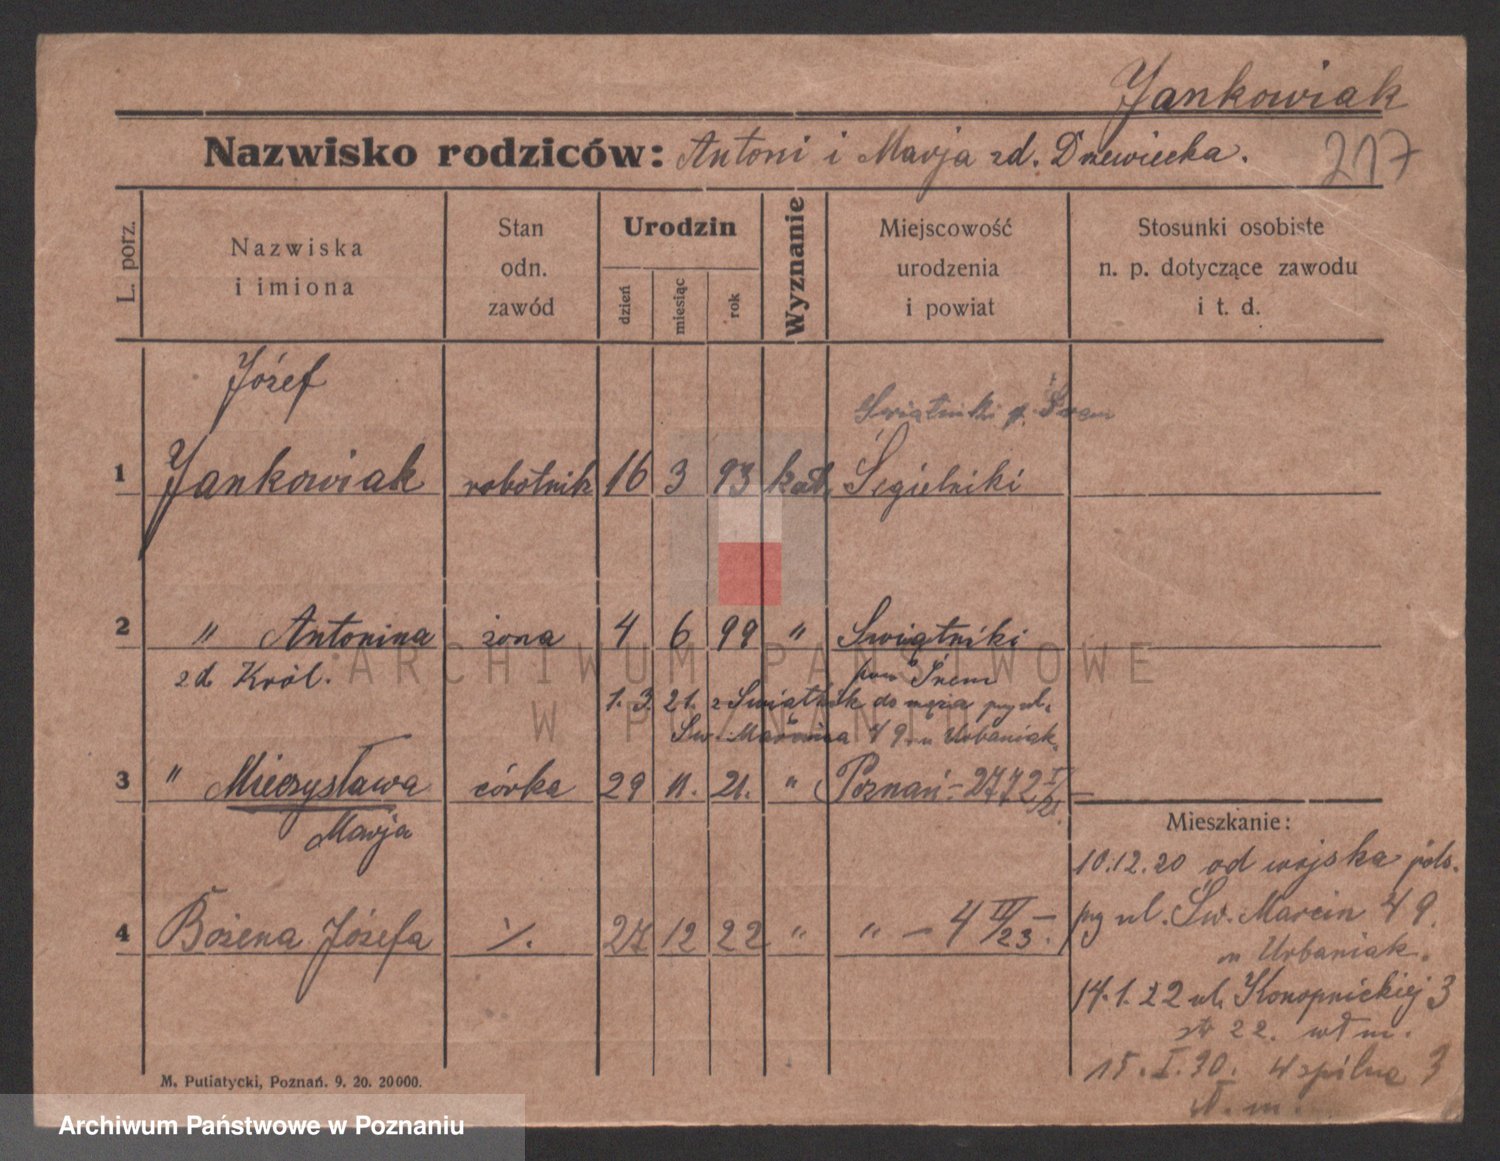 Jankowiak
Nazwisko rodziców: Antoni i Marja zd. Drzewiecka.
217
L. porz.
Nazwiska
i imiona
Stan
odn.
zawód
Urodzin
dzień
miesiąc
rok
Wyznanie
Miejscowość
urodzenia
i powiat
Stosunki osobiste
n. p. dotyczące zawodu
i t. d.
Józef
Świątniki p. Śrem
1 Jankowiak robotnik 16 3 93 kat.
2 " Antonina żona 4 6 99 " Świątniki
zd. Król.
pow Śrem
1. 3. 21. z Świątnik do męża przy ul.
Św. Marcina 49 u Urbaniak.
3 " Mieczysława córka 29 11. 21. " Poznań - 2772
Marja
4 Bożena Józefa 27 12 22 " " - 4 IV/23.
Mieszkanie:
10.12.20 od wojska pols.
ul. Św. Marcin 49.
u Urbaniak.
14.1.22 ul. Konopnickiej 3
22. wł m.
15.I.30. Wspólna 3
M. Putiatycki, Poznań. 9. 20. 20000.
ARCHIWUM PAŃSTWOWE
W POZNANIU
Archiwum Państwowe w Poznaniu